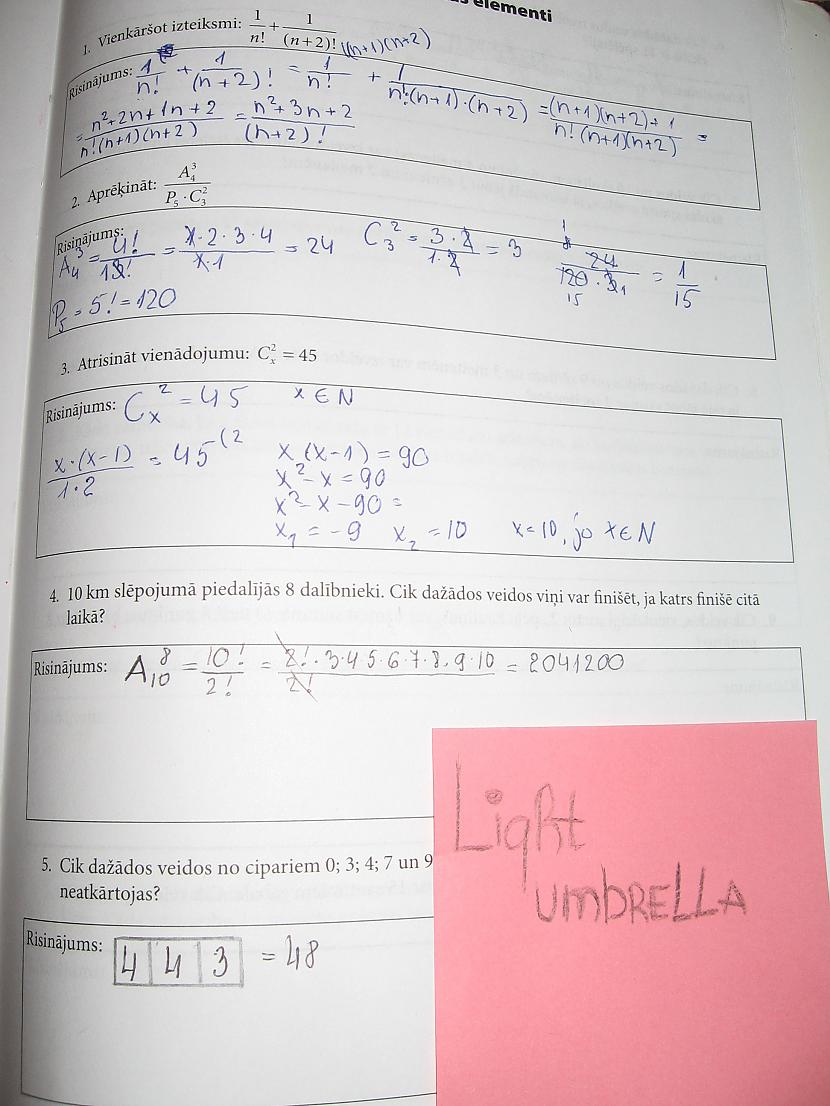 elementi
1. Vienkāršot izteiksmi: 1/n! + 1/(n+2)! ((n+1)(n+2)
Risinājums: 1/n! + 1/(n+2)! = 1/n! + 1/(n!·(n+1)·(n+2)) = ((n+1)(n+2)+1)/(n!(n+1)(n+2)) =
= (n²+2n+1n+2)/(n!(n+1)(n+2)) = (n²+3n+2)/(n+2)!
2. Aprēķināt: A₄³/(P₅·C₃²)
Risinājums:
A₄³ = 4!/1! = (1·2·3·4)/(1·1) = 24 C₃² = (3·2)/(1·2) = 3 24/(120·3) = 1/15
1 15 1
P₅ = 5! = 120
3. Atrisināt vienādojumu: Cₓ² = 45
Risinājums: Cₓ² = 45 x ∈ N
(x·(x-1))/(1·2) = 45 (2 x(x-1) = 90
x²-x = 90
x²-x-90 =
x₁ = -9 x₂ = 10 x=10, jo x∈N
4. 10 km slēpojumā piedalījās 8 dalībnieki. Cik dažādos veidos viņi var finišēt, ja katrs finišē citā
laikā?
Risinājums: A₁₀⁸ = 10!/2! = (2!·3·4·5·6·7·8·9·10)/2! = 2041200
5. Cik dažādos veidos no cipariem 0; 3; 4; 7 un 9
neatkārtojas?
Risinājums: 4 4 3 = 48
Light
umbRELLA